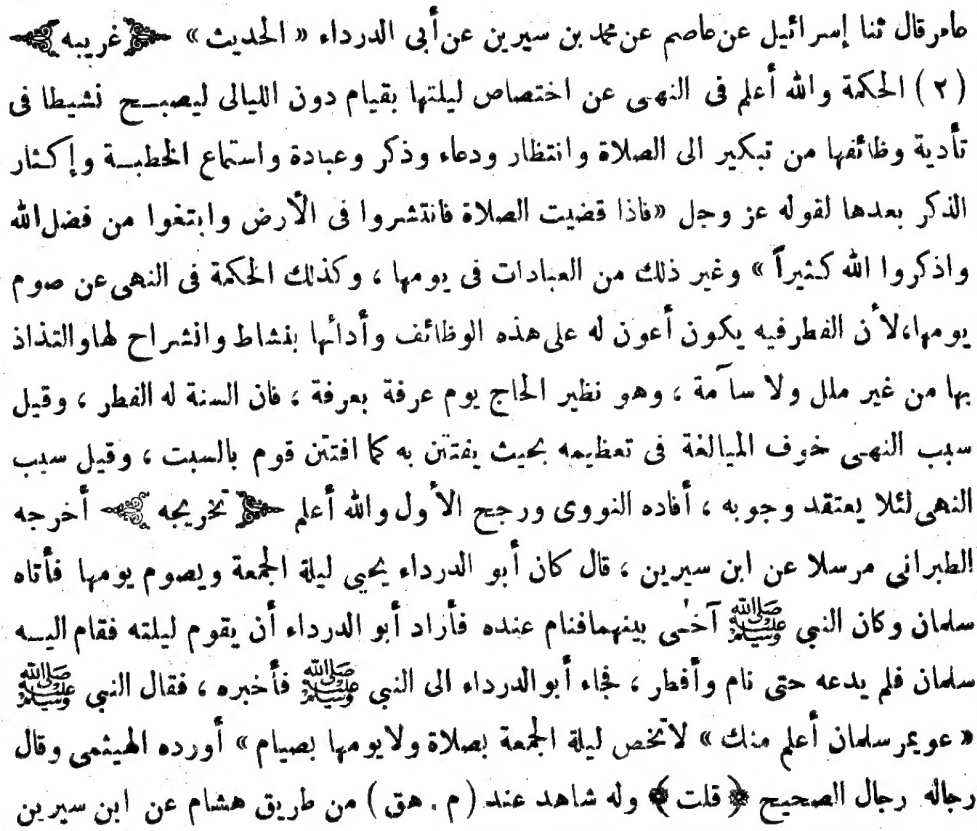 عامر قال ثنا إسرائيل عن عاصم عن محمد بن سيرين عن أبى الدرداء « الحديث » غريبه
( ٢ ) الحكمة والله أعلم فى النهى عن اختصاص ليلتها بقيام دون الليالى ليصبح نشيطا فى
تأدية وظائفها من تبكير الى الصلاة وانتظار ودعاء وذكر وعبادة واستماع الخطبة وإكثار
الذكر بعدها لقوله عز وجل «فاذا قضيت الصلاة فانتشروا فى الأرض وابتغوا من فضل الله
واذكروا الله كثيراً » وغير ذلك من العبادات فى يومها ، وكذلك الحكمة فى النهى عن صوم
يومها،لأن الفطر فيه يكون أعون له على هذه الوظائف وأدائها بنشاط وانشراح لها والتذاذ
بها من غير ملل ولا سآمة ، وهو نظير الحاج يوم عرفة بعرفة ، فان السنة له الفطر ، وقيل
سبب النهى خوف المبالغة فى تعظيمه بحيث يفتتن به كما افتتن قوم بالسبت ، وقيل سبب
النهى لئلا يعتقد وجوبه ، أفاده النووى ورجح الأول والله أعلم تخريجه أخرجه
الطبرانى مرسلا عن ابن سيرين ، قال كان أبو الدرداء يحيى ليلة الجمعة ويصوم يومها فأتاه
سلمان وكان النبي ﷺ آخى بينهما فنام عنده فأراد أبو الدرداء أن يقوم ليلته فقام اليه
سلمان فلم يدعه حتى نام وأفطر ، فجاء أبو الدرداء الى النبي ﷺ فأخبره ، فقال النبي ﷺ
« عويمر سلمان أعلم منك » لا تخص ليلة الجمعة بصلاة ولا يومها بصيام » أورده الهيثمى وقال
رجاله رجال الصحيح ﴿ قلت ﴾ وله شاهد عند ( م . هق ) من طريق هشام عن ابن سيرين